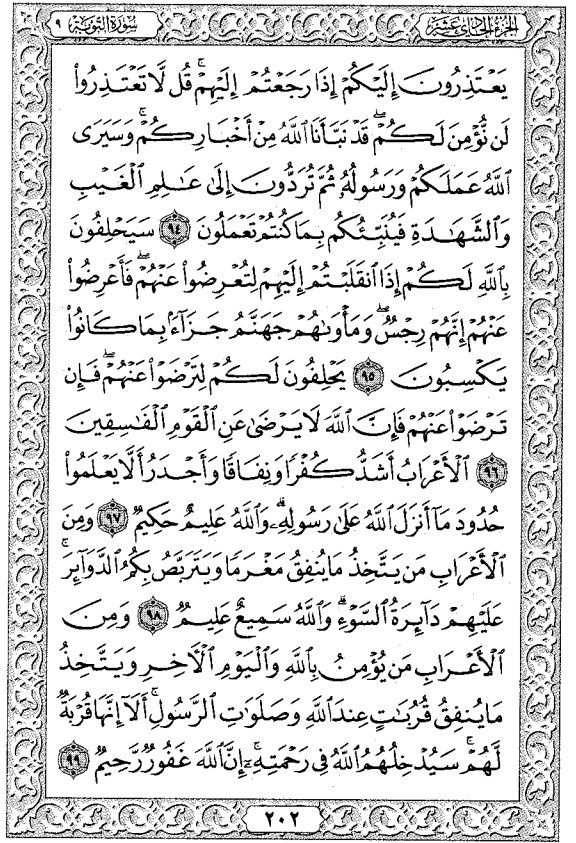 الجزء الحادي عشر
سورة التوبة ٩
يَعْتَذِرُونَ إِلَيْكُمْ إِذَا رَجَعْتُمْ إِلَيْهِمْ ۚ قُل لَّا تَعْتَذِرُوا۟
لَن نُّؤْمِنَ لَكُمْ ۖ قَدْ نَبَّأَنَا ٱللَّهُ مِنْ أَخْبَارِكُمْ ۚ وَسَيَرَى
ٱللَّهُ عَمَلَكُمْ وَرَسُولُهُۥ ثُمَّ تُرَدُّونَ إِلَىٰ عَـٰلِمِ ٱلْغَيْبِ
وَٱلشَّهَـٰدَةِ فَيُنَبِّئُكُم بِمَا كُنتُمْ تَعْمَلُونَ ٩٤ سَيَحْلِفُونَ
بِٱللَّهِ لَكُمْ إِذَا ٱنقَلَبْتُمْ إِلَيْهِمْ لِتُعْرِضُوا۟ عَنْهُمْ ۖ فَأَعْرِضُوا۟
عَنْهُمْ ۖ إِنَّهُمْ رِجْسٌ ۖ وَمَأْوَىٰهُمْ جَهَنَّمُ جَزَآءًۢ بِمَا كَانُوا۟
يَكْسِبُونَ ٩٥ يَحْلِفُونَ لَكُمْ لِتَرْضَوْا۟ عَنْهُمْ ۖ فَإِن
تَرْضَوْا۟ عَنْهُمْ فَإِنَّ ٱللَّهَ لَا يَرْضَىٰ عَنِ ٱلْقَوْمِ ٱلْفَـٰسِقِينَ
٩٦ ٱلْأَعْرَابُ أَشَدُّ كُفْرًا وَنِفَاقًا وَأَجْدَرُ أَلَّا يَعْلَمُوا۟
حُدُودَ مَآ أَنزَلَ ٱللَّهُ عَلَىٰ رَسُولِهِۦ ۗ وَٱللَّهُ عَلِيمٌ حَكِيمٌ ٩٧ وَمِنَ
ٱلْأَعْرَابِ مَن يَتَّخِذُ مَا يُنفِقُ مَغْرَمًا وَيَتَرَبَّصُ بِكُمُ ٱلدَّوَآئِرَ ۚ
عَلَيْهِمْ دَآئِرَةُ ٱلسَّوْءِ ۗ وَٱللَّهُ سَمِيعٌ عَلِيمٌ ٩٨ وَمِنَ
ٱلْأَعْرَابِ مَن يُؤْمِنُ بِٱللَّهِ وَٱلْيَوْمِ ٱلْـَٔاخِرِ وَيَتَّخِذُ
مَا يُنفِقُ قُرُبَـٰتٍ عِندَ ٱللَّهِ وَصَلَوَٰتِ ٱلرَّسُولِ ۚ أَلَآ إِنَّهَا قُرْبَةٌ
لَّهُمْ ۚ سَيُدْخِلُهُمُ ٱللَّهُ فِى رَحْمَتِهِۦٓ ۗ إِنَّ ٱللَّهَ غَفُورٌ رَّحِيمٌ ٩٩
٢٠٢